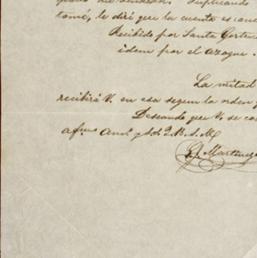 tomé, le diré que la cuenta es
Recibido por Santa Gertru
idem por el azogue.
La mitad
recibirá V. en esa segun la orden
Deseando que V. se co
afmo Am. y S. S. Q. B. S. M.
Martinez